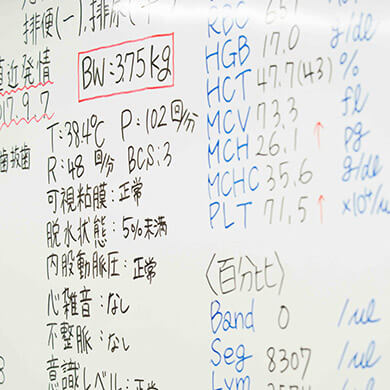 排便(-), 排尿(
BW: 3.75kg
直近発情
2017.9.7
T: 38.4℃ P: 102回/分
歯抜歯
R: 48回/分 BCS: 3
可視粘膜: 正常
脱水状態: 5%未満
内股動脈圧: 正常
心雑音: なし
不整脈: なし
意識レベル: 正常
RBC 651
HGB 17.0 g/dl
HCT 47.7(43) %
MCV 73.3 fl
MCH 26.1 ↑ pg
MCHC 35.6 g/dl
PLT 71.5 ↑ ×10⁴/ul
〈百分比〉
Band 0 /ul
Seg 8307 /ul
Lym